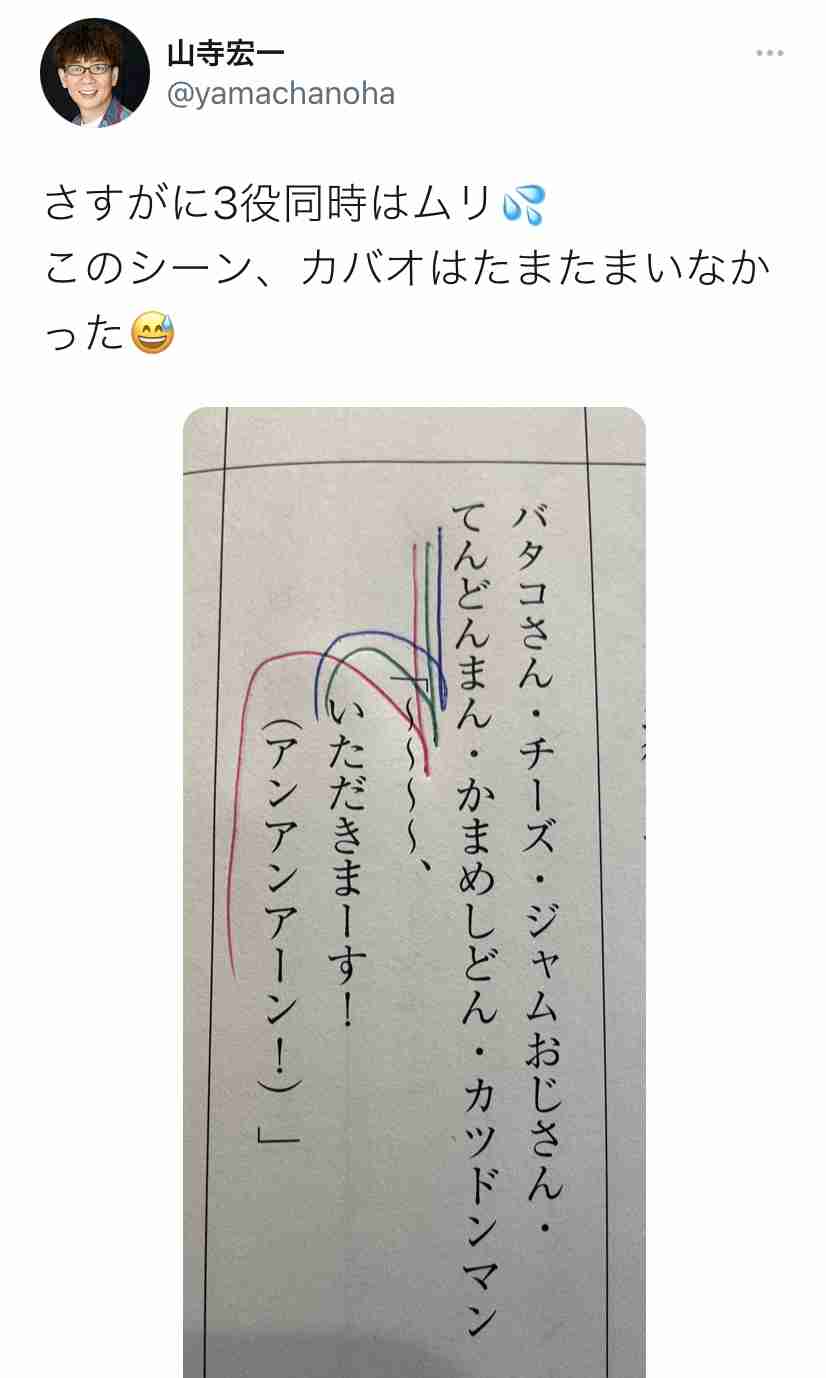 山寺宏一
@yamachanoha
さすがに3役同時はムリ💦
このシーン、カバオはたまたまいなか
った😅
バタコさん・チーズ・ジャムおじさん・
てんどんまん・かまめしどん・カツドンマン
「〜〜〜〜、
いただきまーす！
（アンアンアーン！）」